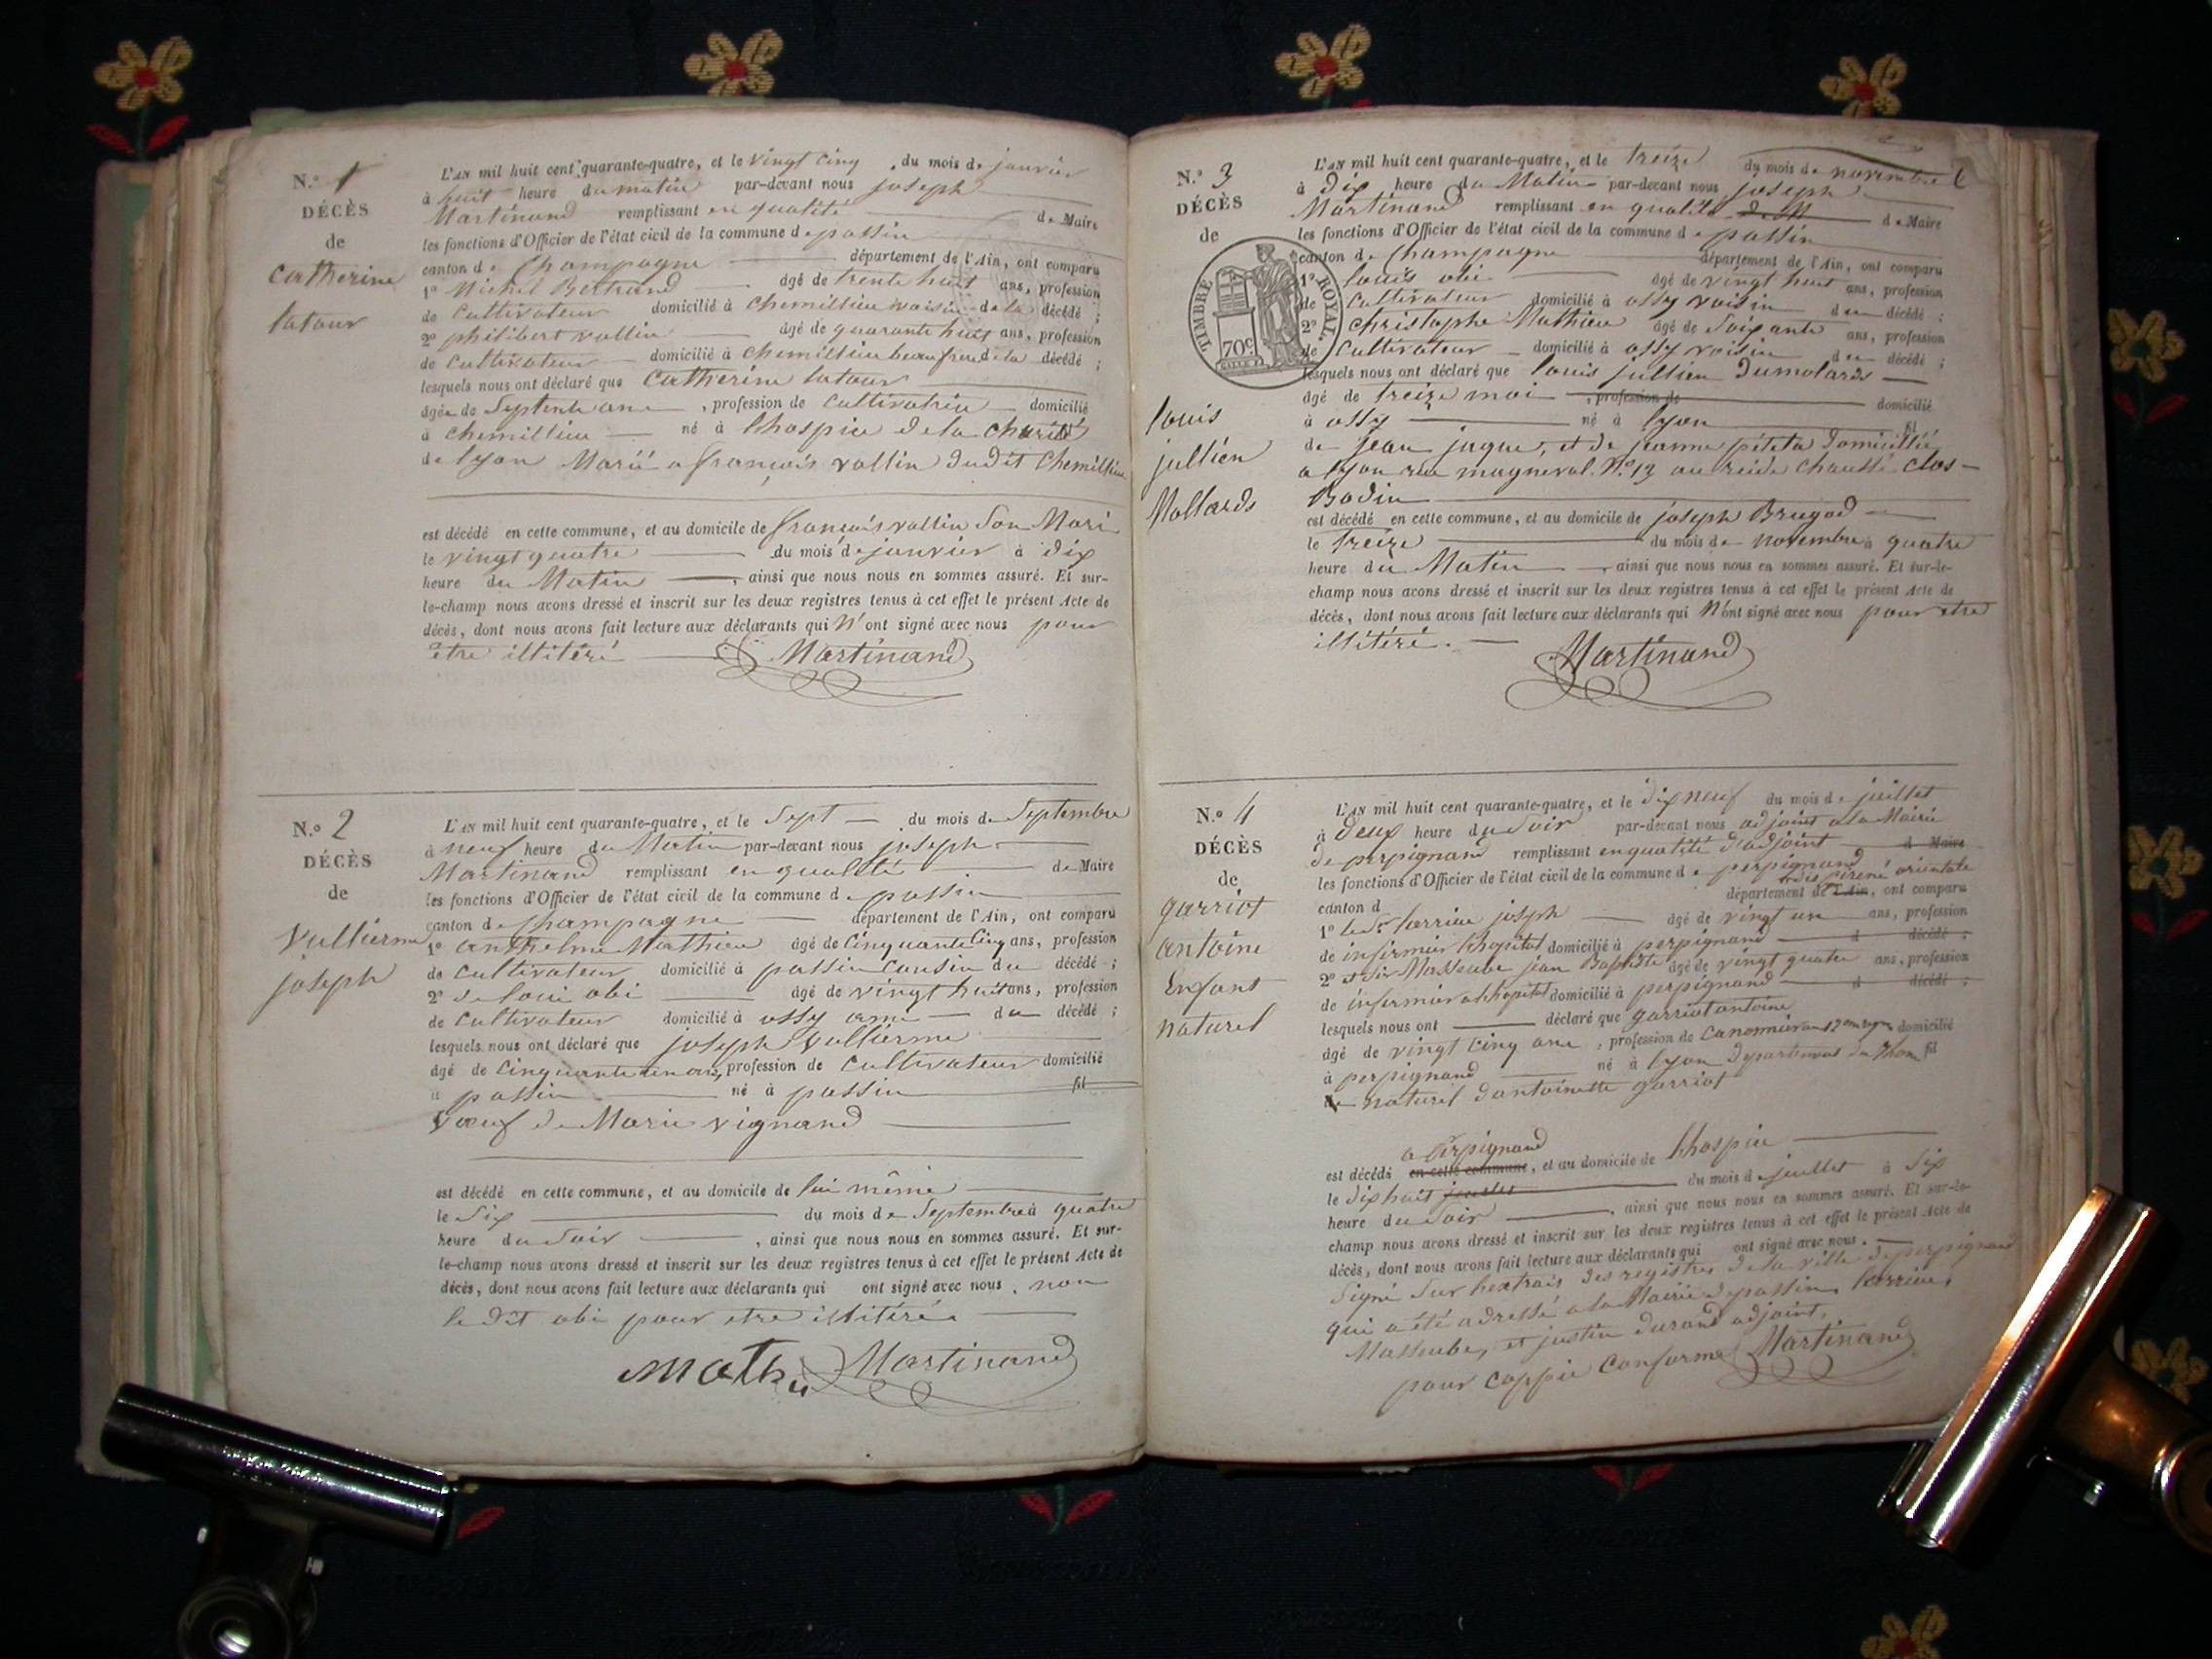 N.o 1
DÉCÈS
de
Catherine
latour
L'AN mil huit cent quarante-quatre, et le vingt cinq du mois de janvier
à huit heure du matin par-devant nous joseph
Martinand remplissant en qualité de Maire
les fonctions d'Officier de l'état civil de la commune de passin
canton de Champagne département de l'Ain, ont comparu
1o Michel Bertrand âgé de trente huit ans, profession
de Cultivateur domicilié à Chemillieu voisin de la décédé ;
2o philibert vallin âgé de quarante huit ans, profession
de Cultivateur domicilié à Chemillieu beau frere de la décédé ;
lesquels nous ont déclaré que Catherine latour
âgée de Septente ans , profession de Cultivatrice domicilié
à chemillieu né à lhospice de la charité
de lyon Marié a françois vallin dudit Chemillieu
est décédé en cette commune, et au domicile de françois vallin son Mari
le vingt quatre du mois de janvier à dix
heure du Matin , ainsi que nous nous en sommes assuré. Et sur-
le-champ nous avons dressé et inscrit sur les deux registres tenus à cet effet le présent Acte de
décès, dont nous avons fait lecture aux déclarants qui N' ont signé avec nous pour
être illitéré Martinand
N.o 2
DÉCÈS
de
Vullierme
joseph
L'AN mil huit cent quarante-quatre, et le Sept du mois de Septembre
à neuf heure du Matin par-devant nous joseph
Martinand remplissant en qualité de Maire
les fonctions d'Officier de l'état civil de la commune de passin
canton de Champagne département de l'Ain, ont comparu
1o anthelme Mathieu âgé de Cinquante Cinq ans, profession
de Cultivateur domicilié à passin Cousin du décédé ;
2o loui obi âgé de vingt huit ans, profession
de Cultivateur domicilié à ossy ami du décédé ;
lesquels nous ont déclaré que joseph Vullierme
âgé de Cinquante un ans, profession de Cultivateur domicilié
à passin né à passin fil
Voeuf de Marie vignand
est décédé en cette commune, et au domicile de lui même
le Six du mois de Septembre à quatre
heure du Soir , ainsi que nous nous en sommes assuré. Et sur-
le-champ nous avons dressé et inscrit sur les deux registres tenus à cet effet le présent Acte de
décès, dont nous avons fait lecture aux déclarants qui ont signé avec nous . non
le dit obi pour etre illitéré.
Mathieu Martinand
N.o 3
DÉCÈS
de
TIMBRE ROYAL.
70c
louis
jullien
Mollards
L'AN mil huit cent quarante-quatre, et le treize du mois de novembre
à dix heure du Matin par-devant nous joseph
Martinand remplissant en qualité de Maire
les fonctions d'Officier de l'état civil de la commune de passin
canton de Champagne département de l'Ain, ont comparu
1o louis obi âgé de vingt huit ans, profession
de Cultivateur domicilié à ossy voisin du décédé ;
2o Christophe Mathieu âgé de Soixante ans, profession
de Cultivateur domicilié à ossy voisin du décédé ;
lesquels nous ont déclaré que louis jullien Dumolards
âgé de treize moi , profession de domicilié
à ossy né à lyon fil
de jean jaque, et de jeanne piteta Domicillié
a lyon rue magneval. N.o 12 au reide chaussé clos
Bodin
est décédé en cette commune, et au domicile de joseph Brugod
le treize du mois de novembre à quatre
heure du Matin , ainsi que nous nous en sommes assuré. Et sur-le-
champ nous avons dressé et inscrit sur les deux registres tenus à cet effet le présent Acte de
décès, dont nous avons fait lecture aux déclarants qui N'ont signé avec nous pour etre
illitéré. Martinand
N.o 4
DÉCÈS
de
garriot
antoine
Enfant
naturel
L'AN mil huit cent quarante-quatre, et le dix neuf du mois de juillet
à deux heure du Soir par-devant nous adjoint a la Mairie
de perpignand remplissant en qualité d'adjoint d Maire
les fonctions d'Officier de l'état civil de la commune de perpignand
pirené orientale
canton d département de l'Ain, ont comparu
1o le Sr. larrieu joseph âgé de vingt un ans, profession
de infirmier lhopital domicilié à perpignand d décédé ;
2o Masseube jean Baptiste âgé de vingt quatre ans, profession
de infirmier a lhopital domicilié à perpignand d décédé ;
lesquels nous ont déclaré que garriot antoine
âgé de vingt cinq ans , profession de Canonnier au domicilié
à perpignand né à lyon departement du Rhone fil
de naturel dantoinette garriot
a Perpignand
est décédé en cette commune, et au domicile de lhospice
le dix huit du mois de juillet à Six
heure du Soir , ainsi que nous nous en sommes assuré. Et sur-le-
champ nous avons dressé et inscrit sur les deux registres tenus à cet effet le présent Acte de
décès, dont nous avons fait lecture aux déclarants qui ont signé avec nous .
Signé Sur lextrais des registres de la ville de perpignand
qui a été adressé a la Mairie de passin, larrieu,
Masseube, et justin durand adjoint,
pour coppie Conforme Martinand